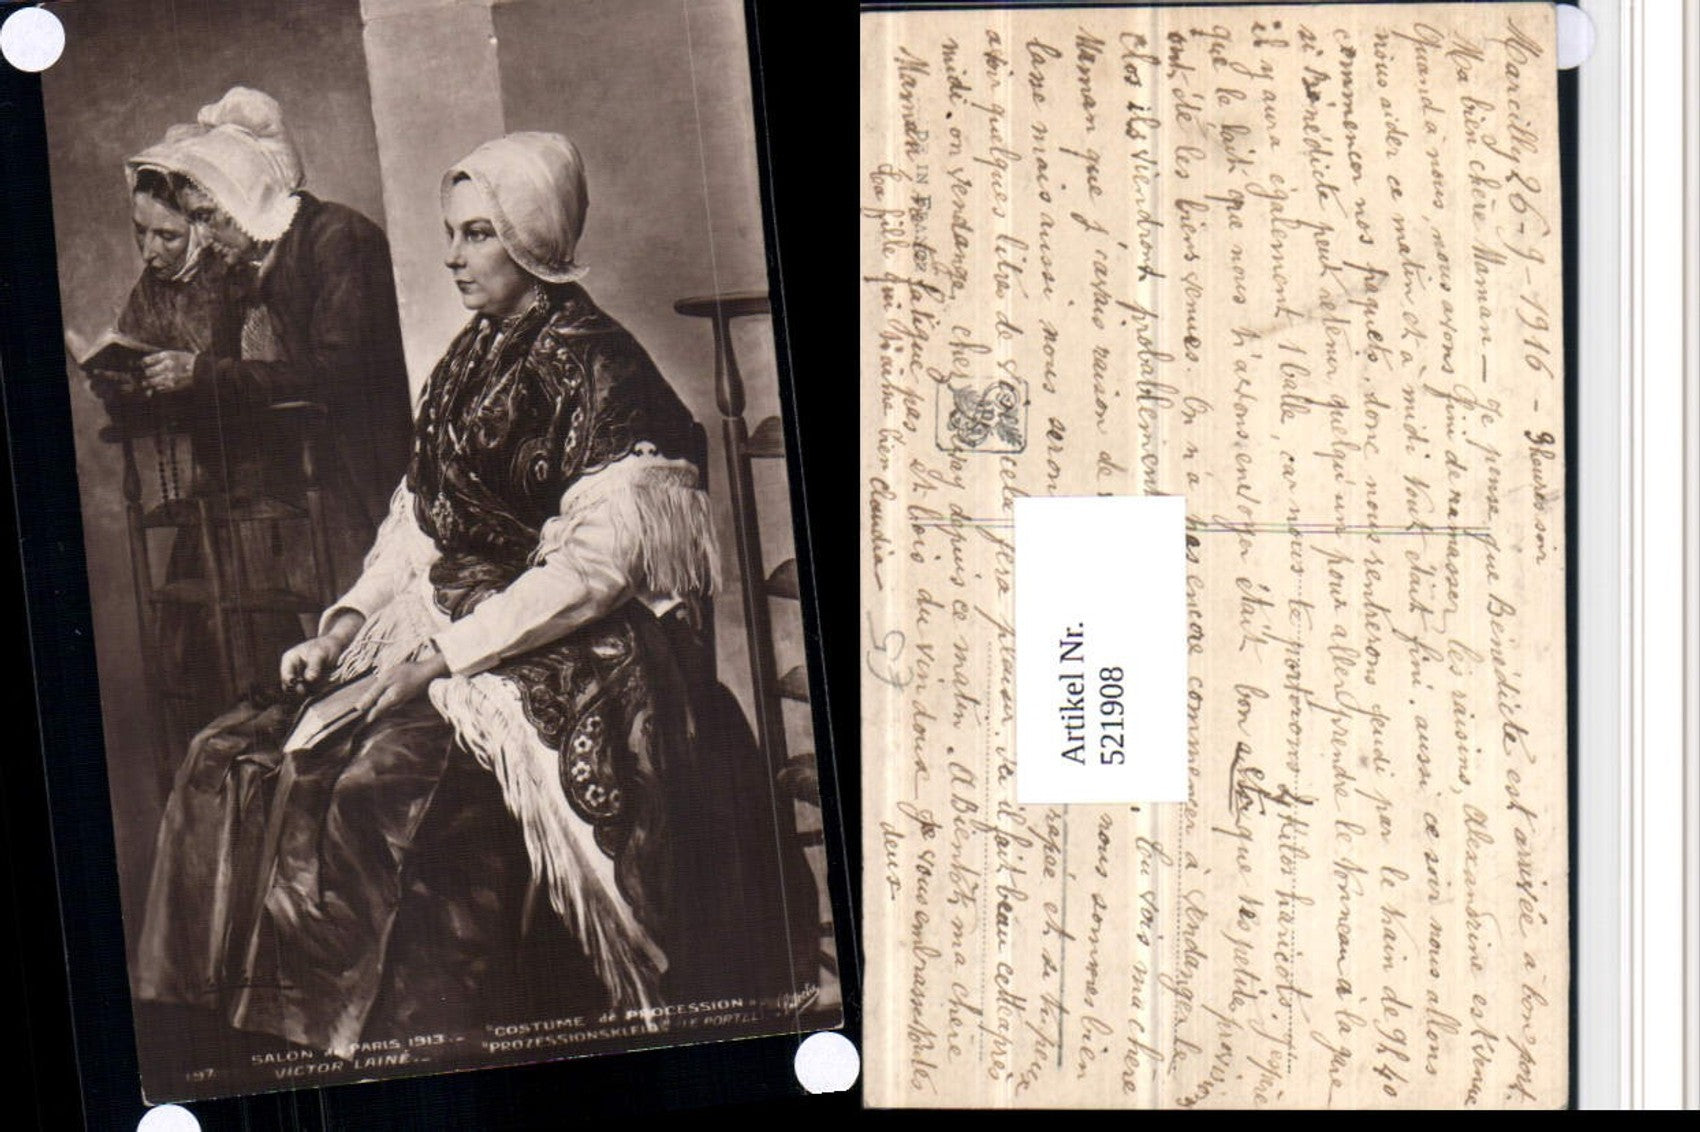 197.
SALON de PARIS 1913.-
VICTOR LAINÉ.-
"COSTUME de PROCESSION"
"PROZESSIONSKLEID" (LE PORTEL)
Marcilly 26-9-1916 - 9 heures soir
Ma bien chère Maman - Je pense que Bénédicte est arrivée à bon port.
Quand à nous, nous avons fini de ramasser les raisins, Alexandrine est venue
nous aider ce matin et à midi tout était fini. aussi ce soir nous allons
commencer nos paquets, donc nous rentrerons jeudi par le train de 9h40
si Bénédicte peut retenir quelqu'un pour aller prendre le tonneau à la gare
il y aura également 1 balle, car nous te porterons kilos haricots. J'espère
que le lait que nous t'avons envoyé était bon et que les petites
ont été les biens venues. On n'a pas encore commencer à vendanger le
clos ils viendront probablement. Tu vois ma chère
Maman que j'avais raison de nous sommes bien
lasse mais aussi nous seron rapée et si tu peux
avoir quelques litres de cela fera plaisir. il fait beau cet après
midi. on vendange chez depuis ce matin. A Bientôt ma chère
Maman ne te fatigue pas et bois du vin doux je vous embrasse toutes
deux
Ta fille qui t'aime bien Claudia
Artikel Nr.
521908